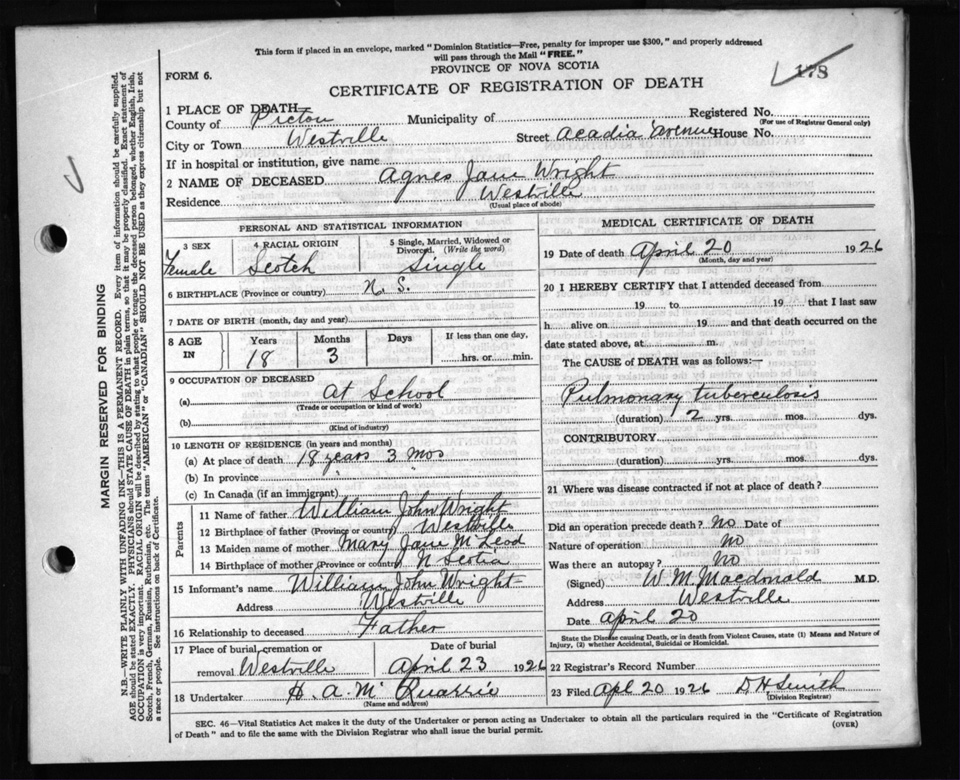 This form if placed in an envelope, marked "Dominion Statistics—Free, penalty for improper use $300," and properly addressed
will pass through the Mail "FREE."
PROVINCE OF NOVA SCOTIA
FORM 6.
178
CERTIFICATE OF REGISTRATION OF DEATH
1 PLACE OF DEATH
County of Pictou Municipality of Registered No.
(For use of Registrar General only)
City or Town Westville Street Acadia Avenue House No.
If in hospital or institution, give name
2 NAME OF DECEASED Agnes Jane Wright
Residence Westville
(Usual place of abode)
PERSONAL AND STATISTICAL INFORMATION
3 SEX 4 RACIAL ORIGIN 5 Single, Married, Widowed or
Divorced. (Write the word)
Female Scotch Single
6 BIRTHPLACE (Province or country) N. S.
7 DATE OF BIRTH (month, day and year)
8 AGE IN Years Months Days If less than one day,
18 3 hrs. or min.
9 OCCUPATION OF DECEASED
(a) At School
(Trade or occupation or kind of work)
(b)
(Kind of industry)
10 LENGTH OF RESIDENCE (in years and months)
(a) At place of death 18 years 3 mos
(b) In province " "
(c) In Canada (if an immigrant)
Parents
11 Name of father William John Wright
12 Birthplace of father (Province or country) Westville
13 Maiden name of mother Mary Jane McLeod
14 Birthplace of mother (Province or country) N Scotia
15 Informant's name William John Wright
Address Westville
16 Relationship to deceased Father
17 Place of burial, cremation or Date of burial
removal Westville April 23 1926
18 Undertaker H. A. McQuarrie
(Name and address)
MEDICAL CERTIFICATE OF DEATH
19 Date of death April 20 1926
(Month, day and year)
20 I HEREBY CERTIFY that I attended deceased from
19 to 19 that I last saw
h alive on 19 and that death occurred on the
date stated above, at m.
The CAUSE of DEATH was as follows:—
Pulmonary tuberculosis
(duration) 2 yrs. mos. dys.
CONTRIBUTORY
(duration) yrs. mos. dys.
21 Where was disease contracted if not at place of death?
Did an operation precede death? no Date of
Nature of operation no
Was there an autopsy? no
(Signed) W. M. Macdonald M.D.
Address Westville
Date April 20
State the Disease causing Death, or in death from Violent Causes, state (1) Means and Nature of
Injury, (2) whether Accidental, Suicidal or Homicidal.
22 Registrar's Record Number
23 Filed Apl 20 1926 D H Smith
(Division Registrar)
SEC. 46—Vital Statistics Act makes it the duty of the Undertaker or person acting as Undertaker to obtain all the particulars required in the "Certificate of Registration
of Death" and to file the same with the Division Registrar who shall issue the burial permit.
(OVER)
MARGIN RESERVED FOR BINDING
N.B.—WRITE PLAINLY WITH UNFADING INK—THIS IS A PERMANENT RECORD. Every item of information should be carefully supplied.
AGE should be stated EXACTLY. PHYSICIANS should STATE CAUSE OF DEATH in plain terms, so that it may be properly classified. Exact statement of
OCCUPATION is very important. RACIAL ORIGIN will be described by stating to what people or tongue the deceased person belonged, whether English, Irish,
Scotch, French, German, Russian, Ruthenian, etc. The terms "AMERICAN" or "CANADIAN" SHOULD NOT BE USED as they express citizenship but not
a race or people. See instructions on back of Certificate.